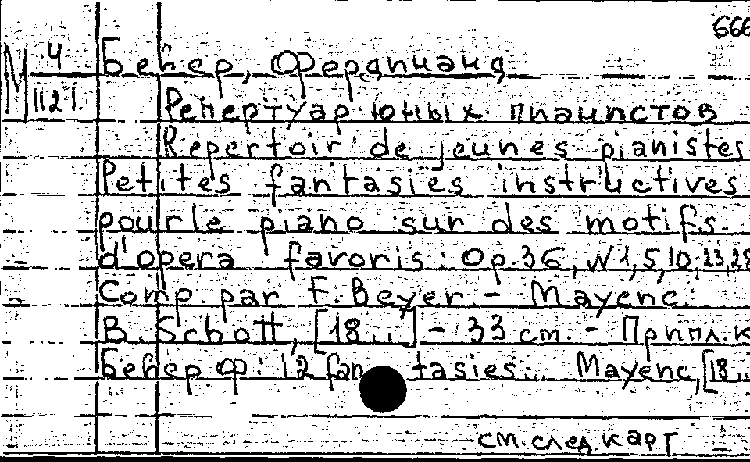 666
М 4 Бейер, Фердинанд
1121
Репертуар юных пианистов
Repertoir de jeunes pianistes
Petites fantasies instructives
pour le piano sur des motifs
d'opera favoris: Op. 36, N 1,5,10,23,28
Comp par F. Beyer - Mayenc:
B. Schott, [18...] - 33 см. - Припл. к
Бейер Ф: 12 fantasies... Mayenc, [18..
см. след. карт